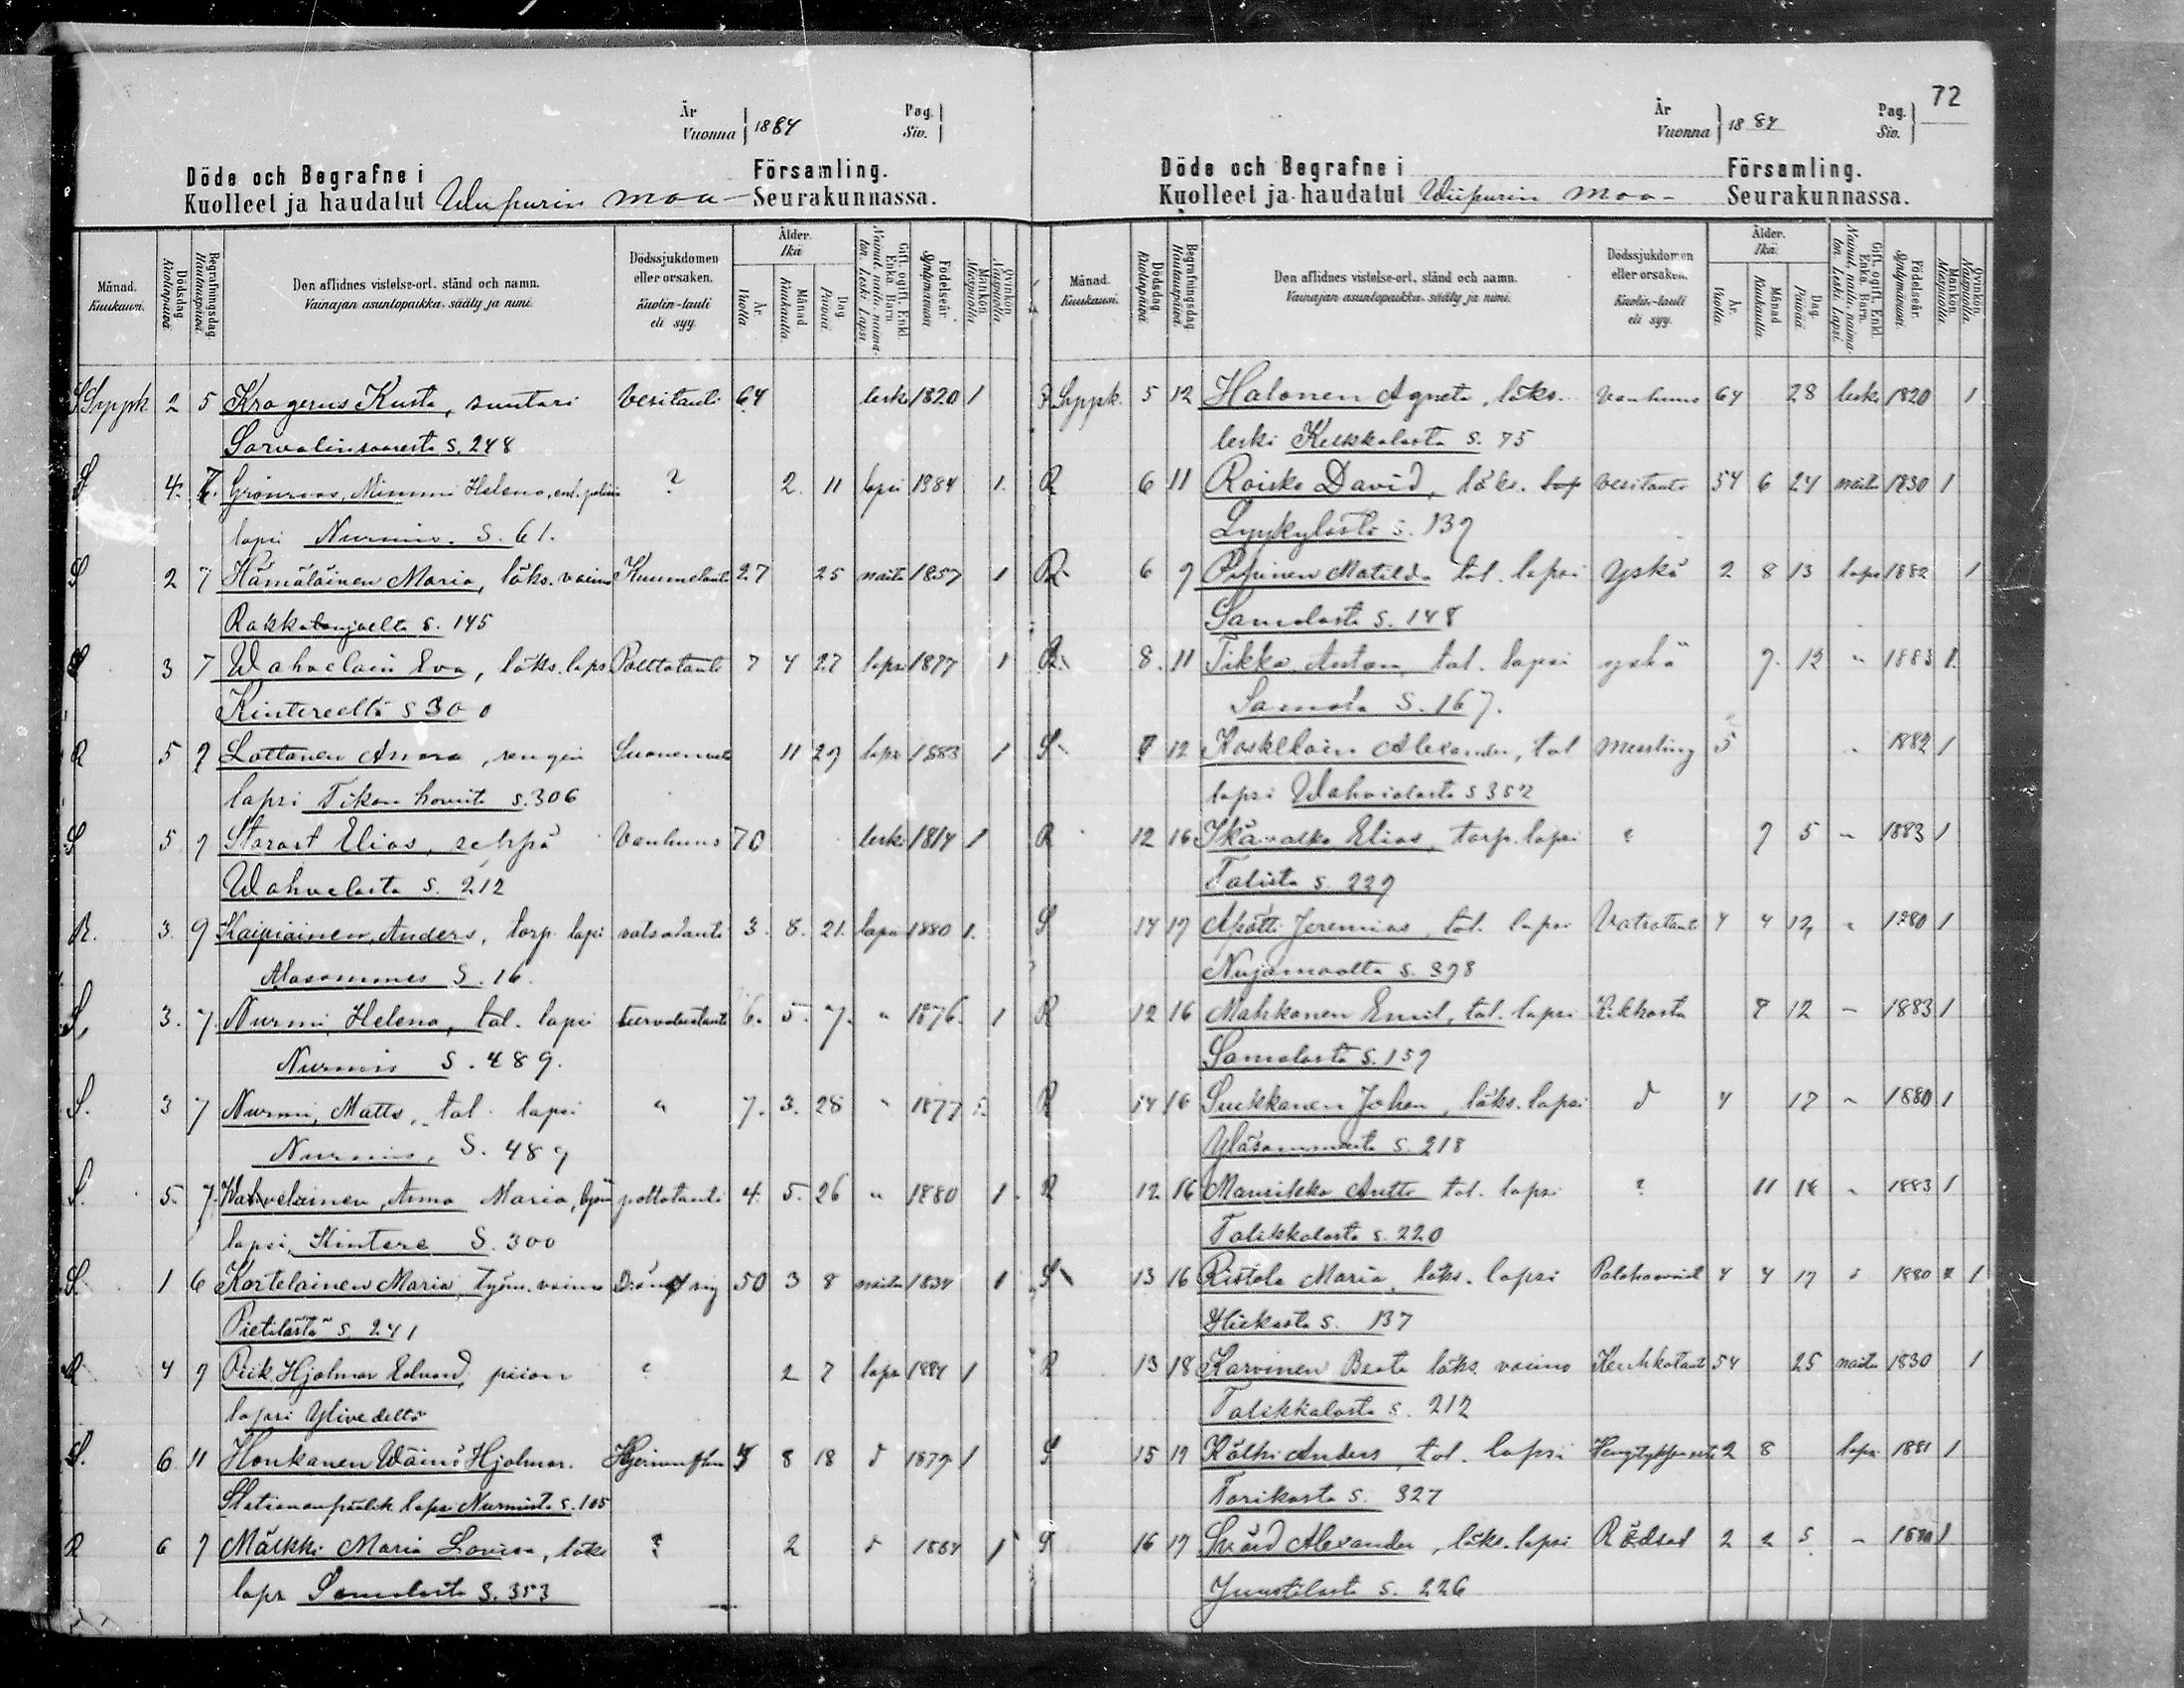 År
Vuonna } 1884
Pag.
Siv. }
Döde och Begrafne i Församling.
Kuolleet ja haudatut Wiipurin maa- Seurakunnassa.
Månad. Kuukausi.
Dödsdag. Kuolinpäivä.
Begrafningsdag. Hautauspäivä.
Den aflidnes vistelse-ort, stånd och namn.
Vainajan asuntopaikka, sääty ja nimi.
Dödssjukdomen eller orsaken.
Kuolin-tauti eli syy.
Ålder. Ikä
År Vuotta
Månad Kuukautta
Dag Päivää.
Gift, ogift, Enkl. Enka, Barn.
Nainut, naitu, naimaton, Leski, Lapsi.
Födelseår. Syntymävuosi.
Mankön. Miespuolia.
Qvinkön. Naispuolia.
S Syysk. 2 5 Krogerus Kusta, suutari Vesitauti 64 leski 1820 1
Sorvalinsaaresta s. 248
S 4. 7. Grönroos, Mimmi Helena, ent. 
? 2. 11 lapsi 1884 1.
lapsi Nurmis. S. 61.
S 2 7 Hämäläinen Maria, läks. vaimo Kuumetauti 27 25 naitu 1857 1
s. 145
S 3 7 Wahvelain Eva, läks. laps Polttotauti 7 4 27 lapsi 1877 1
Kintereeltä s 300
R 5 9 Lattanen Anna, rengin 11 29 lapsi 1883 1
lapsi Tikan hovista s. 306
S 5 9 Starast Elias, seppä Vanhuus 70 leski 1814 1
Wahvelasta s. 212
R. 3. 9 Kaipiainen, Anders, torp. lapsi vatsatauti 3. 8. 21. lapsi 1880 1.
Alasommes S. 16.
S. 3. 7. Nurmi, Helena, tal. lapsi 6. 5. 7. " 1876. 1
Nurmis S. 489.
S. 3 7 Nurmi, Matts, tal. lapsi " 7. 3. 28 " 1877 1.
Nurmis, S. 489
S. 5. 7. Wahvelainen, Anna Maria, polttotauti 4. 5. 26 " 1880 1.
lapsi, Kintere S. 300
S. 1 6 Kortelainen Maria, työm. vaimo 50 3 8 naitu 1834 1
Pietilästä s. 241
R 4 9 Piik Hjalmar Edvard, piian ? 2 7 lapsi 1884 1
lapsi Ylivedeltä
S. 6 11 Honkanen Wäinö Hjalmar. 8 18 d 1879 1
lapsi Nurmista s. 105
R 6 9 Mälkki Maria Lovisa, läks ? 2 d 1884 1
laps Samolasta s. 353
72
År
Vuonna } 1884
Pag.
Siv. }
Döde och Begrafne i Församling.
Kuolleet ja haudatut Wiipurin maa- Seurakunnassa.
Månad. Kuukausi.
Dödsdag. Kuolinpäivä.
Begrafningsdag. Hautauspäivä.
Den aflidnes vistelse-ort, stånd och namn.
Vainajan asuntopaikka, sääty ja nimi.
Dödssjukdomen eller orsaken.
Kuolin-tauti eli syy.
Ålder. Ikä.
År. Vuotta.
Månad Kuukautta
Dag Päivää.
Gift, ogift, Enkl. Enka, Barn.
Nainut, naitu, naimaton, Leski, Lapsi.
Födelseår. Syntymävuosi.
Mankön. Miespuolia.
Qvinkön. Naispuolia.
R Syysk. 5 12 Halonen Agneta, läks. Vanhuus 64 28 leski 1820 1
leski s. 75
R 6 11 Roisko David, läks. Vesitauti 54 6 24 naitu 1830 1
Lyykylästä s. 139
R 6 9 Matilda tal. lapsi Yskä 2 8 13 laps 1882 1
Samolasta s. 148
R. 8. 11 Tikka Anton, tal. lapsi yskä 9. 12 " 1883 1.
Samola S. 167.
S 7 12 Koskelain Alexander, tal Messling 5 " 1882 1
lapsi Wahvialasta s 352
R 12 16 Elias, torp. lapsi ? 9 5 " 1883 1
Talista s. 229
S 14 19 Apatti Jeremias, tal. lapsi Vatsataut 4 4 12 " 1880 1
Nuijamaalta s. 398
R 12 16 Mahkonen Emil, tal. lapsi 8 12 " 1883 1
Samolasta s. 159
R 14 16 Suikkanen Johan, läks. lapsi d 4 17 " 1880 1
Yläsommeesta s. 218
R 12 16 Mansikka Antti tal. lapsi ? 11 18 " 1883 1
Talikkalasta s. 220
S 13 16 Ristola Maria, läks. lapsi 4 4 17 " 1880 1
Hiekasta s. 137
R 13 18 Karvinen Beata läks vaimo Keuhkotaut 54 25 naitu 1830 1
Talikkalasta s. 212
S 15 19 Kälki Anders, tal. lapsi 2 8 lapsi 1881 1
Torikasta s. 327
S 16 19 Svärd Alexander, läks. lapsi Rödsot 2 2 5 " 1
Juustilasta s. 226